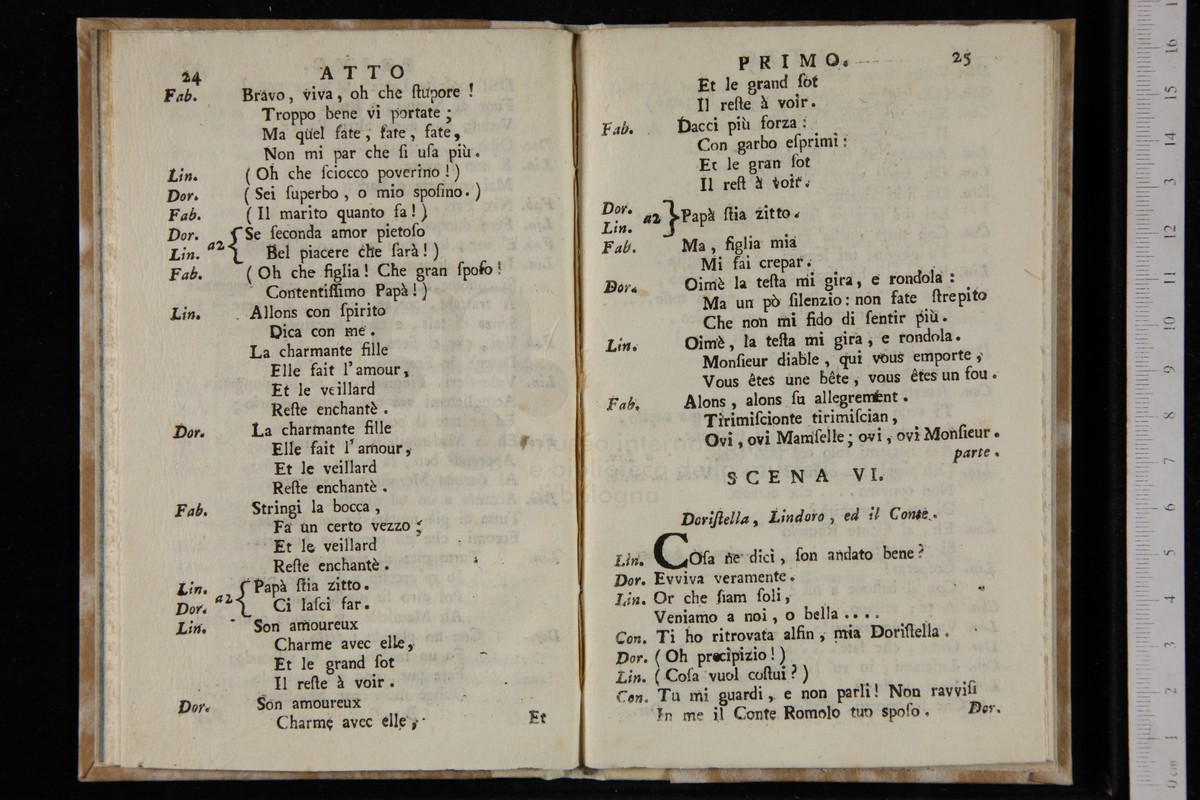 24 ATTO
Fab. Bravo, viva, oh che ſtupore !
Troppo bene vi portate ;
Ma quel fate, fate, fate,
Non mi par che ſi uſa più.
Lin. ( Oh che ſciocco poverino ! )
Dor. ( Sei ſuperbo, o mio spoſino. )
Fab. ( Il marito quanto fa ! )
Dor. a2 { Se ſeconda amor pietoſo
Lin. Bel piacere che ſarà ! )
Fab. ( Oh che figlia ! Che gran ſpoſo !
Contentiſſimo Papà ! )
Lin. Allons con ſpirito
Dica con me.
La charmante fille
Elle fait l'amour,
Et le veillard
Reſte enchantè.
Dor. La charmante fille
Elle fait l'amour,
Et le veillard
Reſte enchantè.
Fab. Stringi la bocca,
Fa un certo vezzo ;
Et le veillard
Reſte enchantè.
Lin. a2 { Papà ſtia zitto.
Dor. Ci laſci far.
Lin. Son amoureux
Charme avec elle,
Et le grand ſot
Il reſte à voir.
Dor. Son amoureux
Charme avec elle,
Et
PRIMO. 25
Et le grand ſot
Il reſte à voir.
Fab. Dacci più forza :
Con garbo eſprimi :
Et le gran ſot
Il reſt à voir.
Dor. a2 } Papà ſtia zitto.
Lin.
Fab. Ma, figlia mia
Mi fai crepar.
Dor. Oimè la teſta mi gira, e rondola :
Ma un pò ſilenzio : non fate ſtrepito
Che non mi fido di ſentir più.
Lin. Oimè, la teſta mi gira, e rondola.
Monſieur diable, qui vous emporte,
Vous êtes une bête, vous êtes un fou.
Fab. Alons, alons ſu allegrement.
Tirimiſcionte tirimiſcian,
Ovi, ovi Mamſelle ; ovi, ovi Monſieur.
parte.
SCENA VI.
Doriſtella, Lindoro, ed il Conte.
Lin. COſa ne dici, ſon andato bene ?
Dor. Evviva veramente.
Lin. Or che ſiam ſoli,
Veniamo a noi, o bella ....
Con. Ti ho ritrovata alfin, mia Doriſtella.
Dor. ( Oh precipizio ! )
Lin. ( Coſa vuol coſtui ? )
Con. Tu mi guardi, e non parli ! Non ravviſi
In me il Conte Romolo tuo spoſo.
Dor.
museo internazionale
e biblioteca della
di bologna